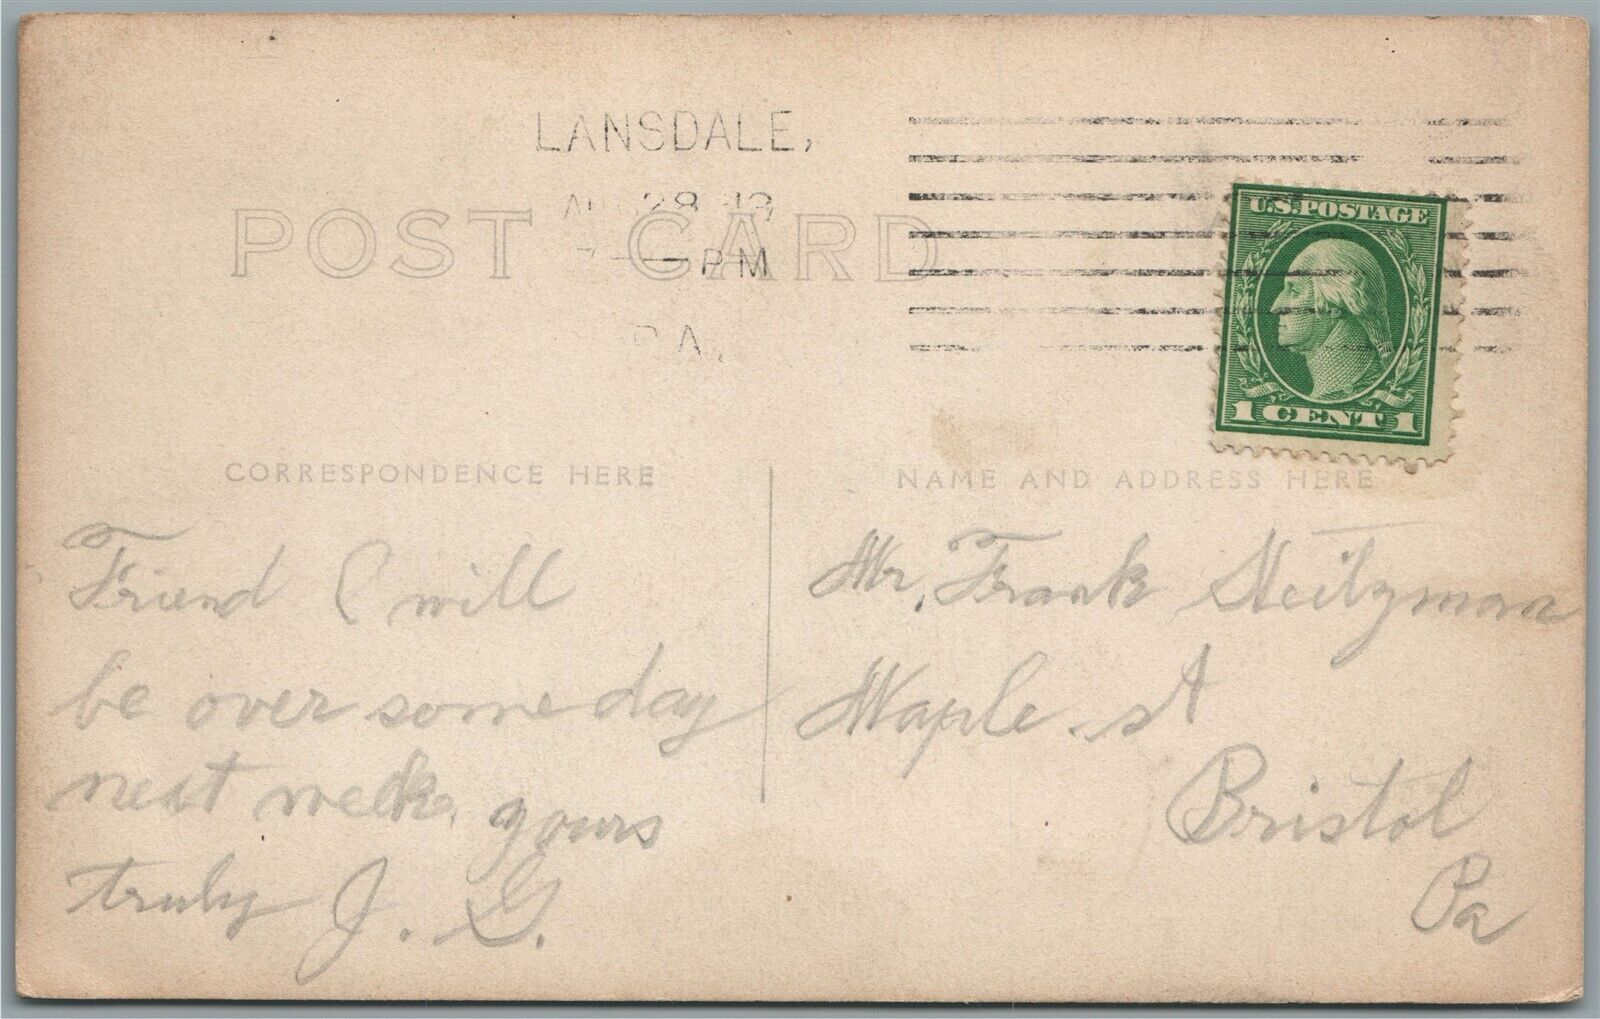 LANSDALE,
AUG 28
7 — PM
PA.
POST CARD
U.S. POSTAGE
1 CENT 1
CORRESPONDENCE HERE
NAME AND ADDRESS HERE
Friend I will
be over some day
next week. yours
truly J. G.
Mr. Frank Heitzman
Maple. st
Bristol
Pa